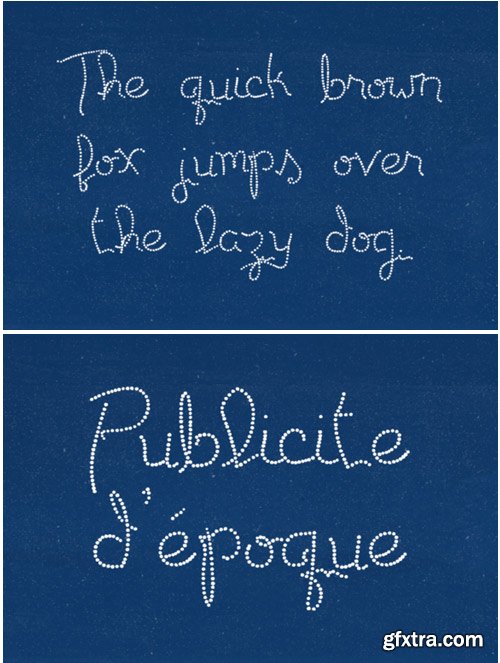 The quick brown
fox jumps over
the lazy dog.
Publicite
d'époque
gfxtra.com